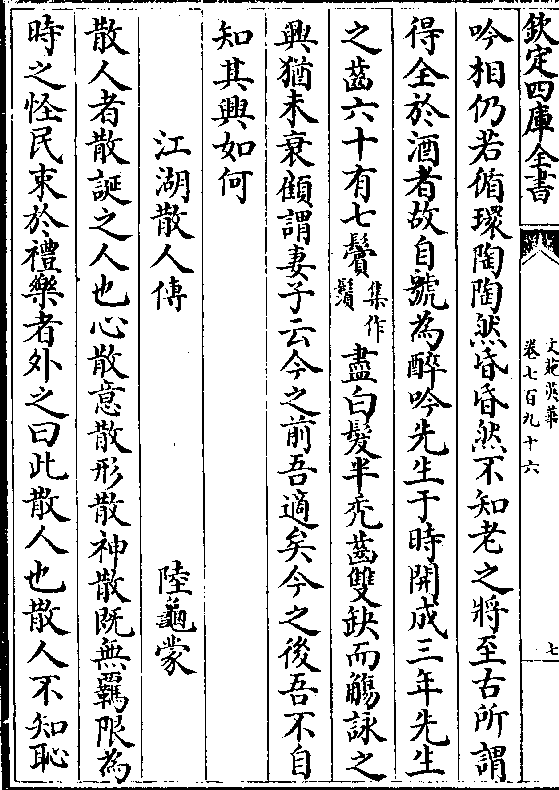 欽定四庫全書
文苑英華
卷七百九十六
七
吟相仍若循環陶陶然昏昏然不知老之將至古所謂
得全於酒者故自號為醉吟先生于時開成三年先生
之齒六十有七鬢集作鬚盡白髮半禿齒雙缺而觴詠之
興猶未衰顧謂妻子云今之前吾適矣今之後吾不自
知其興如何
江湖散人傳
陸龜蒙
散人者散誕之人也心散意散形散神散既無羈限為
時之怪民束於禮樂者外之曰此散人也散人不知恥